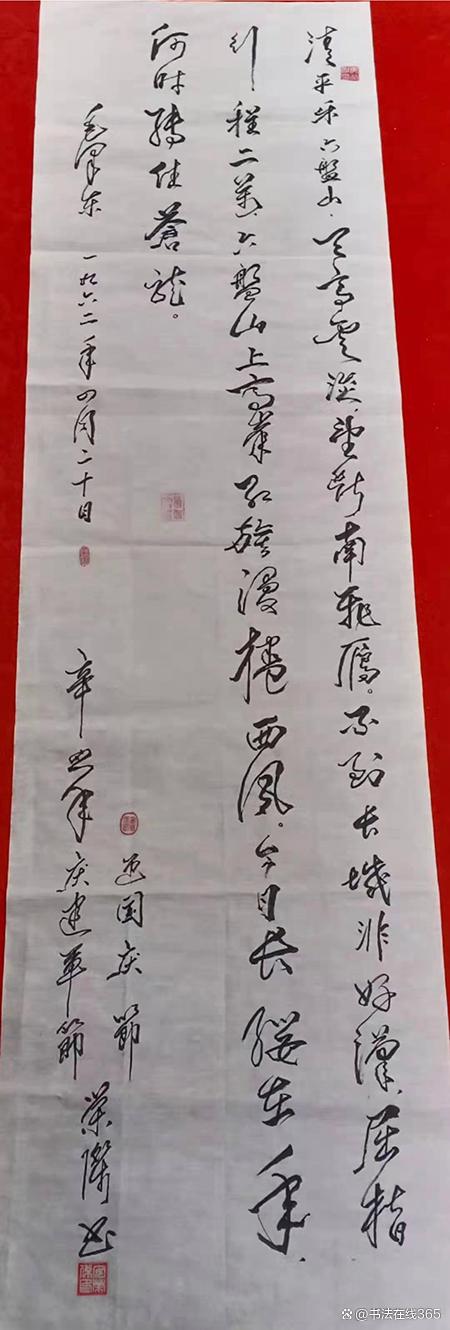 清平乐六盤山.天高雲淡、望断南飛雁。不到长城非好漢、屈指
行程二萬、六盤山上高峯红旗漫捲西風。今日长缨在手、
何时缚住蒼龍。
毛澤东 一九六二年四月二十日
迎国庆節
辛丑年庆建军節 荣 书
@书法在线365